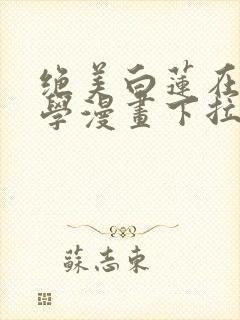 绝美白蓮在
學漫畫下拉
蘇志東